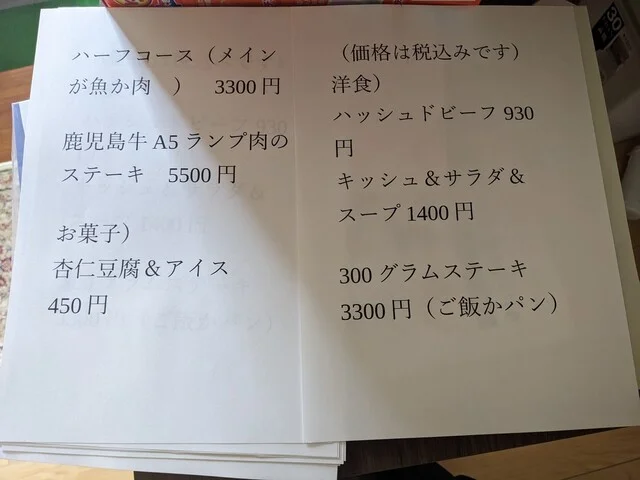 ハーフコース（メイン
が魚か肉　）　3300円
鹿児島牛A5ランプ肉の
ステーキ　5500円
お菓子）
杏仁豆腐＆アイス
450円
（価格は税込みです）
洋食）
ハッシュドビーフ930
円
キッシュ＆サラダ＆
スープ1400円
300グラムステーキ
3300円（ご飯かパン）
30